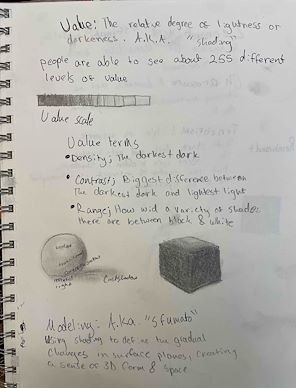 Value: The relative degree of lightness or
darkeness. A.K.A. "shading"
people are able to see about 255 different
levels of value
Value scale
Value terms
• Density; The darkest dark
• Contrast; Biggest difference between
The darkest dark and lightest light
• Range; How wid a variety of shades
there are between black & white
Castshadow
Modeling - A.K.a. "sfumato"
Using shading to define the gradual
changes in surface planes, creating
a sense of 3D form & space